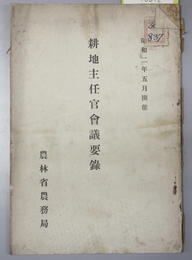 昭和十一年五月開催
耕地主任官會議要錄
農林省農務局